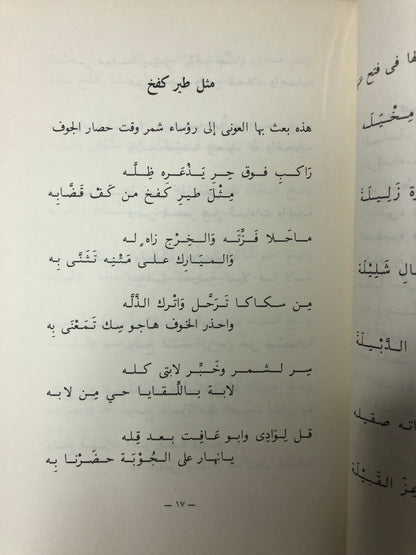 مثل طير كفخ
هذه بعث بها العونى إلى رؤساء شمر وقت حصار الجوف
رَاكبٍ فوق حِر يَذْعَره ظِلَّه
مِثْلَ طيرٍ كفخ من كَفّ قَضَّابِه
ماحَلا فَزَّتَه وَالخِرْج زاهٍ له
والميَارِك على مَتْنِه تَثَنَّى بِه
مِن سكاكا تَرَحَّل وَاترك الذلَّه
واحذر الخوف هاجوسِك تَمَعْنَى بِه
سِر لشمر وخَبِّر لابتى كله
لابة باللّقايا حي مِن لابه
قل لِوَادى وابو عافِت بعد قِله
يانهار على الجُوبَة حضَرْنا بِه
— ١٧ —
ها فى فتح
مِخْيَلَه
زَلِيلَة
شَلِيلَة
الدَّبْيلَة
اته صقيله
عِزّ القَبيْلَة